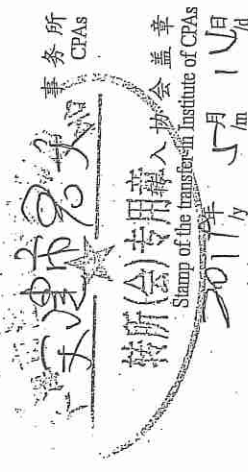 天津市
事务所
CPAs
转所(会)专用章
入协会盖章
Stamp of the transfer-in Institute of CPAs
2017年 5月 日
/y /m /d